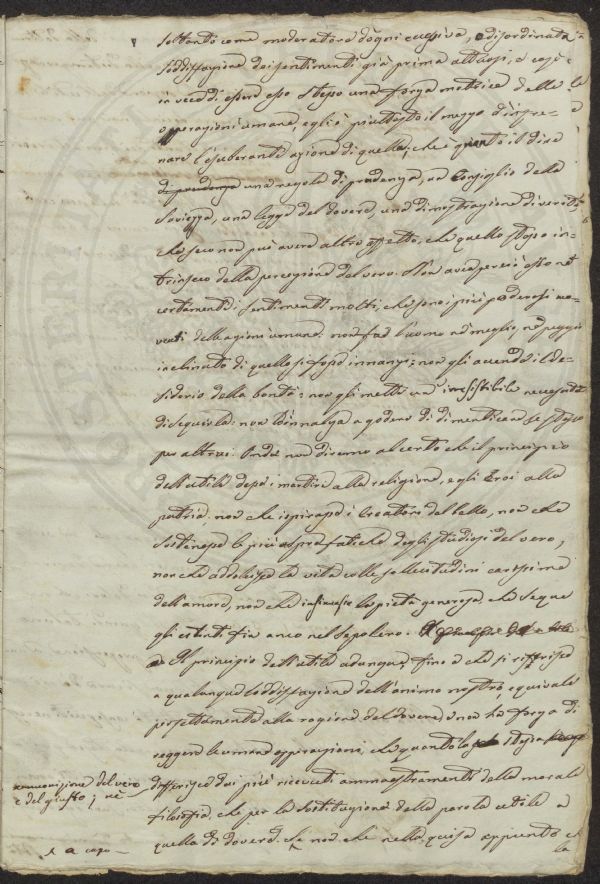 soltanto come moderatore d'ogni eccessiva, e disordinata
soddisfazione dei sentimenti già prima attuosi, e così
in vece di essere esso stesso una forza motrice delle
operazioni umane, egli è piuttosto il mezzo d'infre-
nare l'esuberante azione di quella; che è quanto il dire
di prudenza una regola di prudenza, un Consiglio della
Saviezza, una legge del dovere, una dimostrazione di verità,
che seco non può avere altro effetto, che quello stesso in-
trinseco della percezione del vero. Non avea perciò esso nè
certamente i sentimenti molti, che sono i più poderosi mo-
venti delle azioni umane: non fa l'uomo nè meglio, nè peggio
inclinato di quello si fosse innanzi; non gli accende il de-
siderio della bontà: non gli mette un irresistibile necessità
di seguirla: non l'innalza a godere di dimenticare se stesso
per altrui. Onde non diremo al certo che il principio
dell'utile desse i martiri alla religione, e gli Eroi alla
patria. non che ispirasse i Creatori del bello, non che
sostenesse le più aspre fatiche degli studiosi del vero;
non che addolcisse la vita colle sollecitudini carissime
dell'amore, non che la pietà generosa, che segue
gli estinti fin anco nel sepolcro.
Il principio dell'utile adunque, fino a che si riferisce
a qualunque soddisfazione dell'animo nostro, equivale
perfettamente alla ragione del dovere, e non ha forza di
reggere le umane operazioni, che quanto la stessa
ammonizione del vero
e del giusto; nè
differisce dai più ricevuti ammaestramenti della morale
filosofia, che per la sostituzione della parola utile a
quella di dovere. Se non che nella guisa appunto che
a capo
la